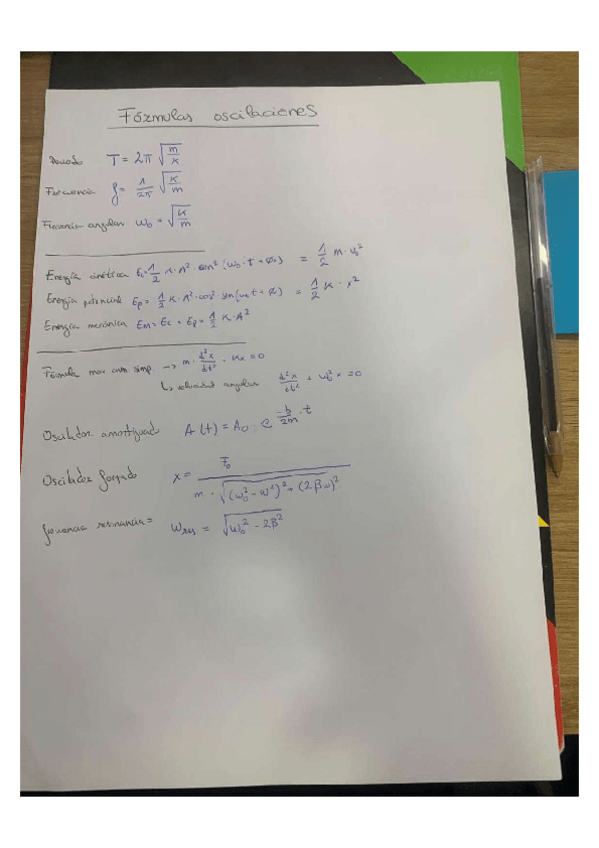 Fórmulas oscilaciones
Periodo T = 2π √(m/k)
Frecuencia f = 1/2π √(k/m)
Frecuencia angular ω₀ = √(k/m)
Energía cinética Ec = 1/2 k · A² · sen² (ω₀ · t + φ₀) = 1/2 m · v²
Energía potencial Ep = 1/2 k · A² · cos² sen(ω₀ t + φ) = 1/2 k · x²
Energía mecánica Em = Ec + Ep = 1/2 k · A²
Fórmula mov arm simp. → m · d²x/dt² + kx = 0
↳ velocidad angular d²x/dt² + ω₀² x = 0
Oscilador amortiguado A(t) = A₀ · e^(-b/2m · t)
Oscilador forzado x = F₀ / m · √((ω₀² - ω²)² + (2βω)²)
frecuencia resonancia = ω = √(ω₀² - 2β²)